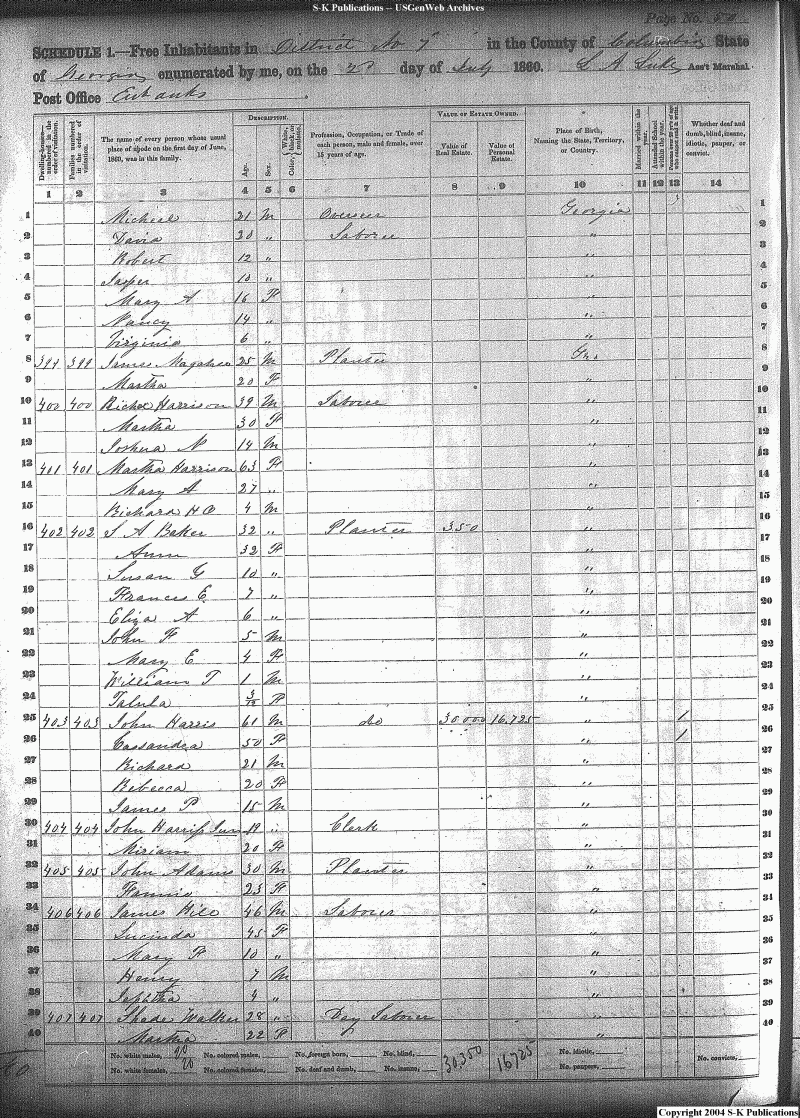 S-K Publications -- USGenWeb Archives
Page No. 50
SCHEDULE 1.—Free Inhabitants in District No 7 in the County of Columbia State
of Georgia enumerated by me, on the 2d day of July 1860. S A Luke Ass't Marshal.
Post Office Eubanks
Dwelling-houses—numbered in the order of visitation.
Families numbered in the order of visitation.
The name of every person whose usual place of abode on the first day of June, 1860, was in this family.
DESCRIPTION.
Age.
Sex.
Color, White, black, or mulatto.
Profession, Occupation, or Trade of each person, male and female, over 15 years of age.
VALUE OF ESTATE OWNED.
Value of Real Estate.
Value of Personal Estate.
Place of Birth, Naming the State, Territory, or Country.
Married within the year.
Attended School within the year.
Whether deaf and dumb, blind, insane, idiotic, pauper, or convict.
1 2 3 4 5 6 7 8 9 10 11 12 13 14
1 Micheal 21 M Overseer Georgia 1
2 David 20 " Laborer " 2
3 Robert 12 " " 3
4 Jasper 10 " " 4
5 Mary A 16 F " 5
6 Nancy 14 " " 6
7 Virginia 6 " " 7
8 399 399 James Magahee 25 M Planter Ga. 8
9 Martha 20 F " 9
10 400 400 Harrison 39 M Laborer " 10
11 Martha 30 F " 11
12 Joshua N 14 M " 12
13 401 401 Martha Harrison 63 F " 13
14 Mary A 27 " " 14
15 Richard H O 4 M " 15
16 402 402 S A Baker 32 " Planter 350 " 16
17 Ann 32 F " 17
18 Susan G 10 " " 18
19 Frances E 7 " " 19
20 Eliza A 6 " " 20
21 John F 5 M " 21
22 Mary E 4 F " 22
23 William T 1 M " 23
24 Talula 3/12 F " 24
25 403 403 John Harris 61 M do 30000 16.725 " 1 25
26 Cassandra 50 F " 1 26
27 Richard 21 M " 27
28 Rebecca 20 F " 28
29 James P 15 M " 29
30 404 404 John Harris Jun 19 " Clerk " 30
31 Miriam 20 F " 31
32 405 405 John Adams 30 M Planter " 32
33 Fannie 23 F " 33
34 406 406 James 46 M Laborer " 34
35 Lucinda 45 F " 35
36 Mary F 10 " " 36
37 Henry 7 M " 37
38 4 " " 38
39 407 407 Shade Walker 28 " Day Laborer " 39
40 Martha 22 F " 40
No. white males, 20 No. colored males, No. foreign born, No. blind, 30350 16725 No. idiotic, No. convicts,
No. white females, 20 No. colored females, No. deaf and dumb, No. insane, No. paupers,
Copyright 2004 S-K Publications